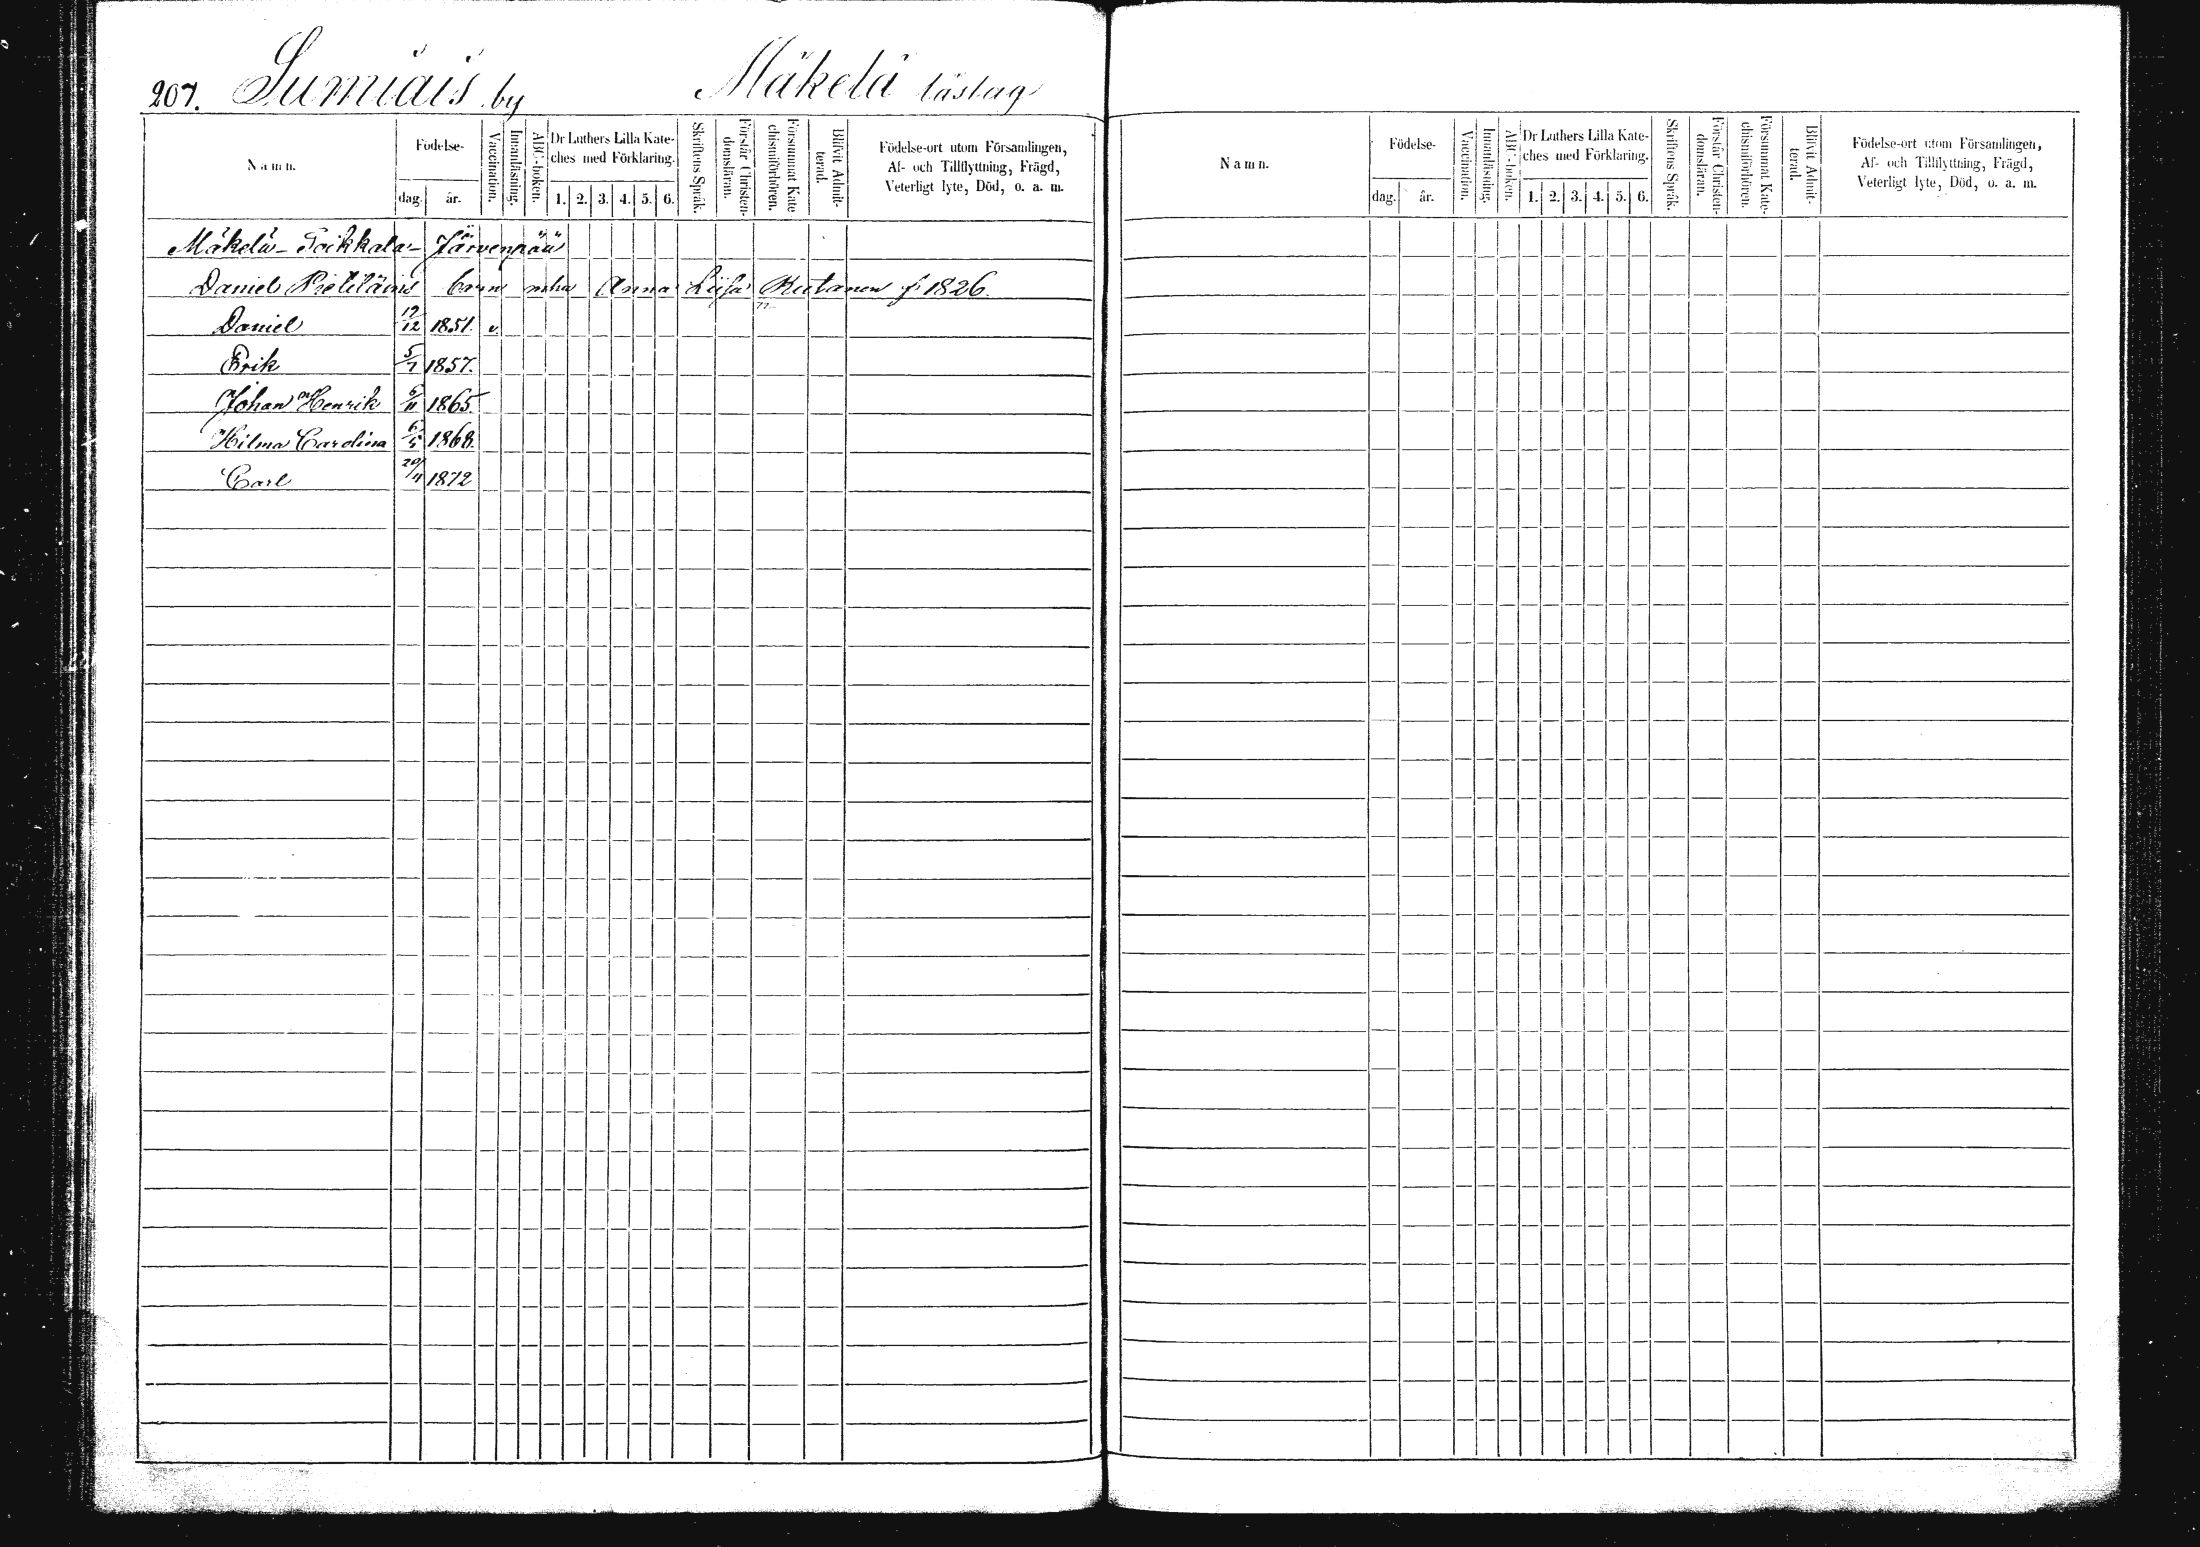 207. Sumiais by Mäkelä läslag
Namn.
Födelse-
dag.
år.
Vaccination.
Innanläsning.
ABC-boken.
Dr Luthers Lilla Kate-
ches med Förklaring.
1. 2. 3. 4. 5. 6.
Skriftens Språk.
Förstår Christen-
domsläran.
Försummat Kate
chismiförhören.
Blifvit Admit-
terad.
Födelse-ort utom Församlingen,
Af- och Tillflyttning, Frägd,
Veterligt lyte, Död, o. a. m.
Mäkelä- Toikkala- Järvenpää
Daniel Pietiläinis barn mhu Anna Liisa Rutanen f. 1826.
Daniel 19/12 1851. v.
Erik 5/7 1857.
Johan Henrik 5/11 1865.
Hilma Carolina 6/5 1868.
Carl 20/4 1872
Namn.
Födelse-
dag.
år.
Vaccination.
Innanläsning.
ABC-boken.
Dr Luthers Lilla Kate-
ches med Förklaring.
1. 2. 3. 4. 5. 6.
Skriftens Språk.
Förstår Christen-
domsläran.
Försummat Kate-
chismiförhören.
Blifvit Admit-
terad.
Födelse-ort utom Församlingen,
Af- och Tillflyttning, Frägd,
Veterligt lyte, Död, o. a. m.